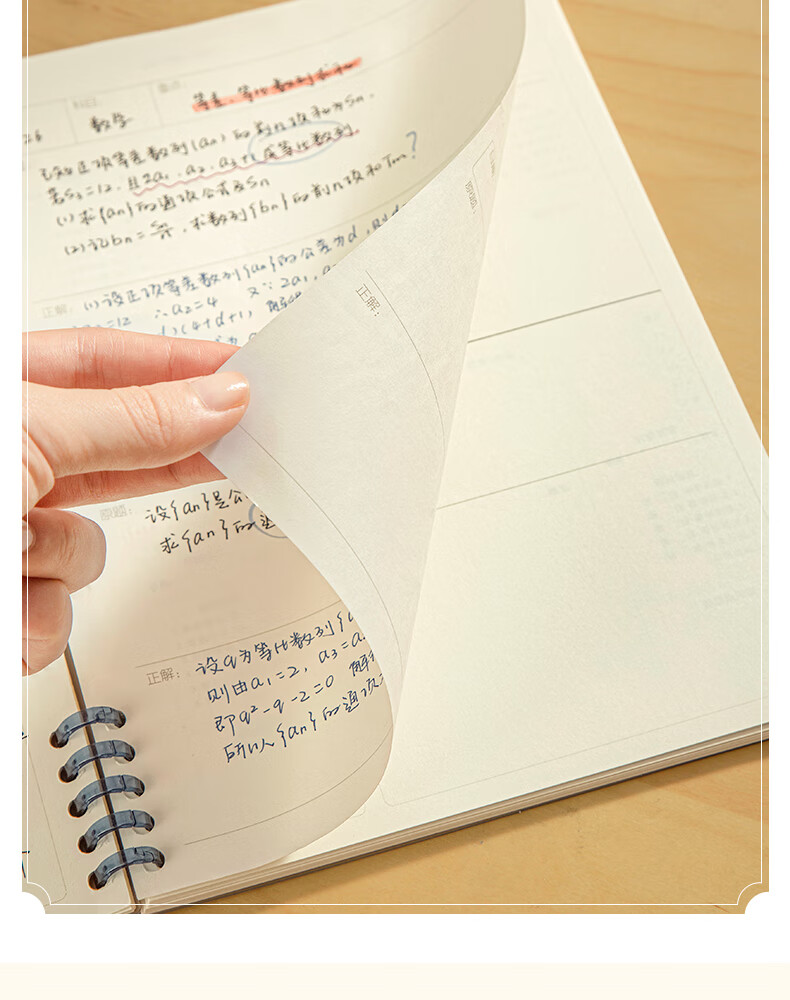 数学
等差、等比数列求和
已知正项等差数列{an}的前n项和为Sn.
若S3=12,且2a1,a2,a3+1成等比数列.
(1)求{an}的通项公式及Sn
(2)记bn=,求数列{bn}的前n项和Tn?
正解: (1)设正项等差数列{an}的公差为d,则
=12 ∴a2=4 又∵2a1,
(4+d+1),
正解:
原题: 设{an}是公
求{an}的通
正解: 设q为等比数列{
则由a1=2, a3=a
即q²-q-2=0 解
所以{an}的通项